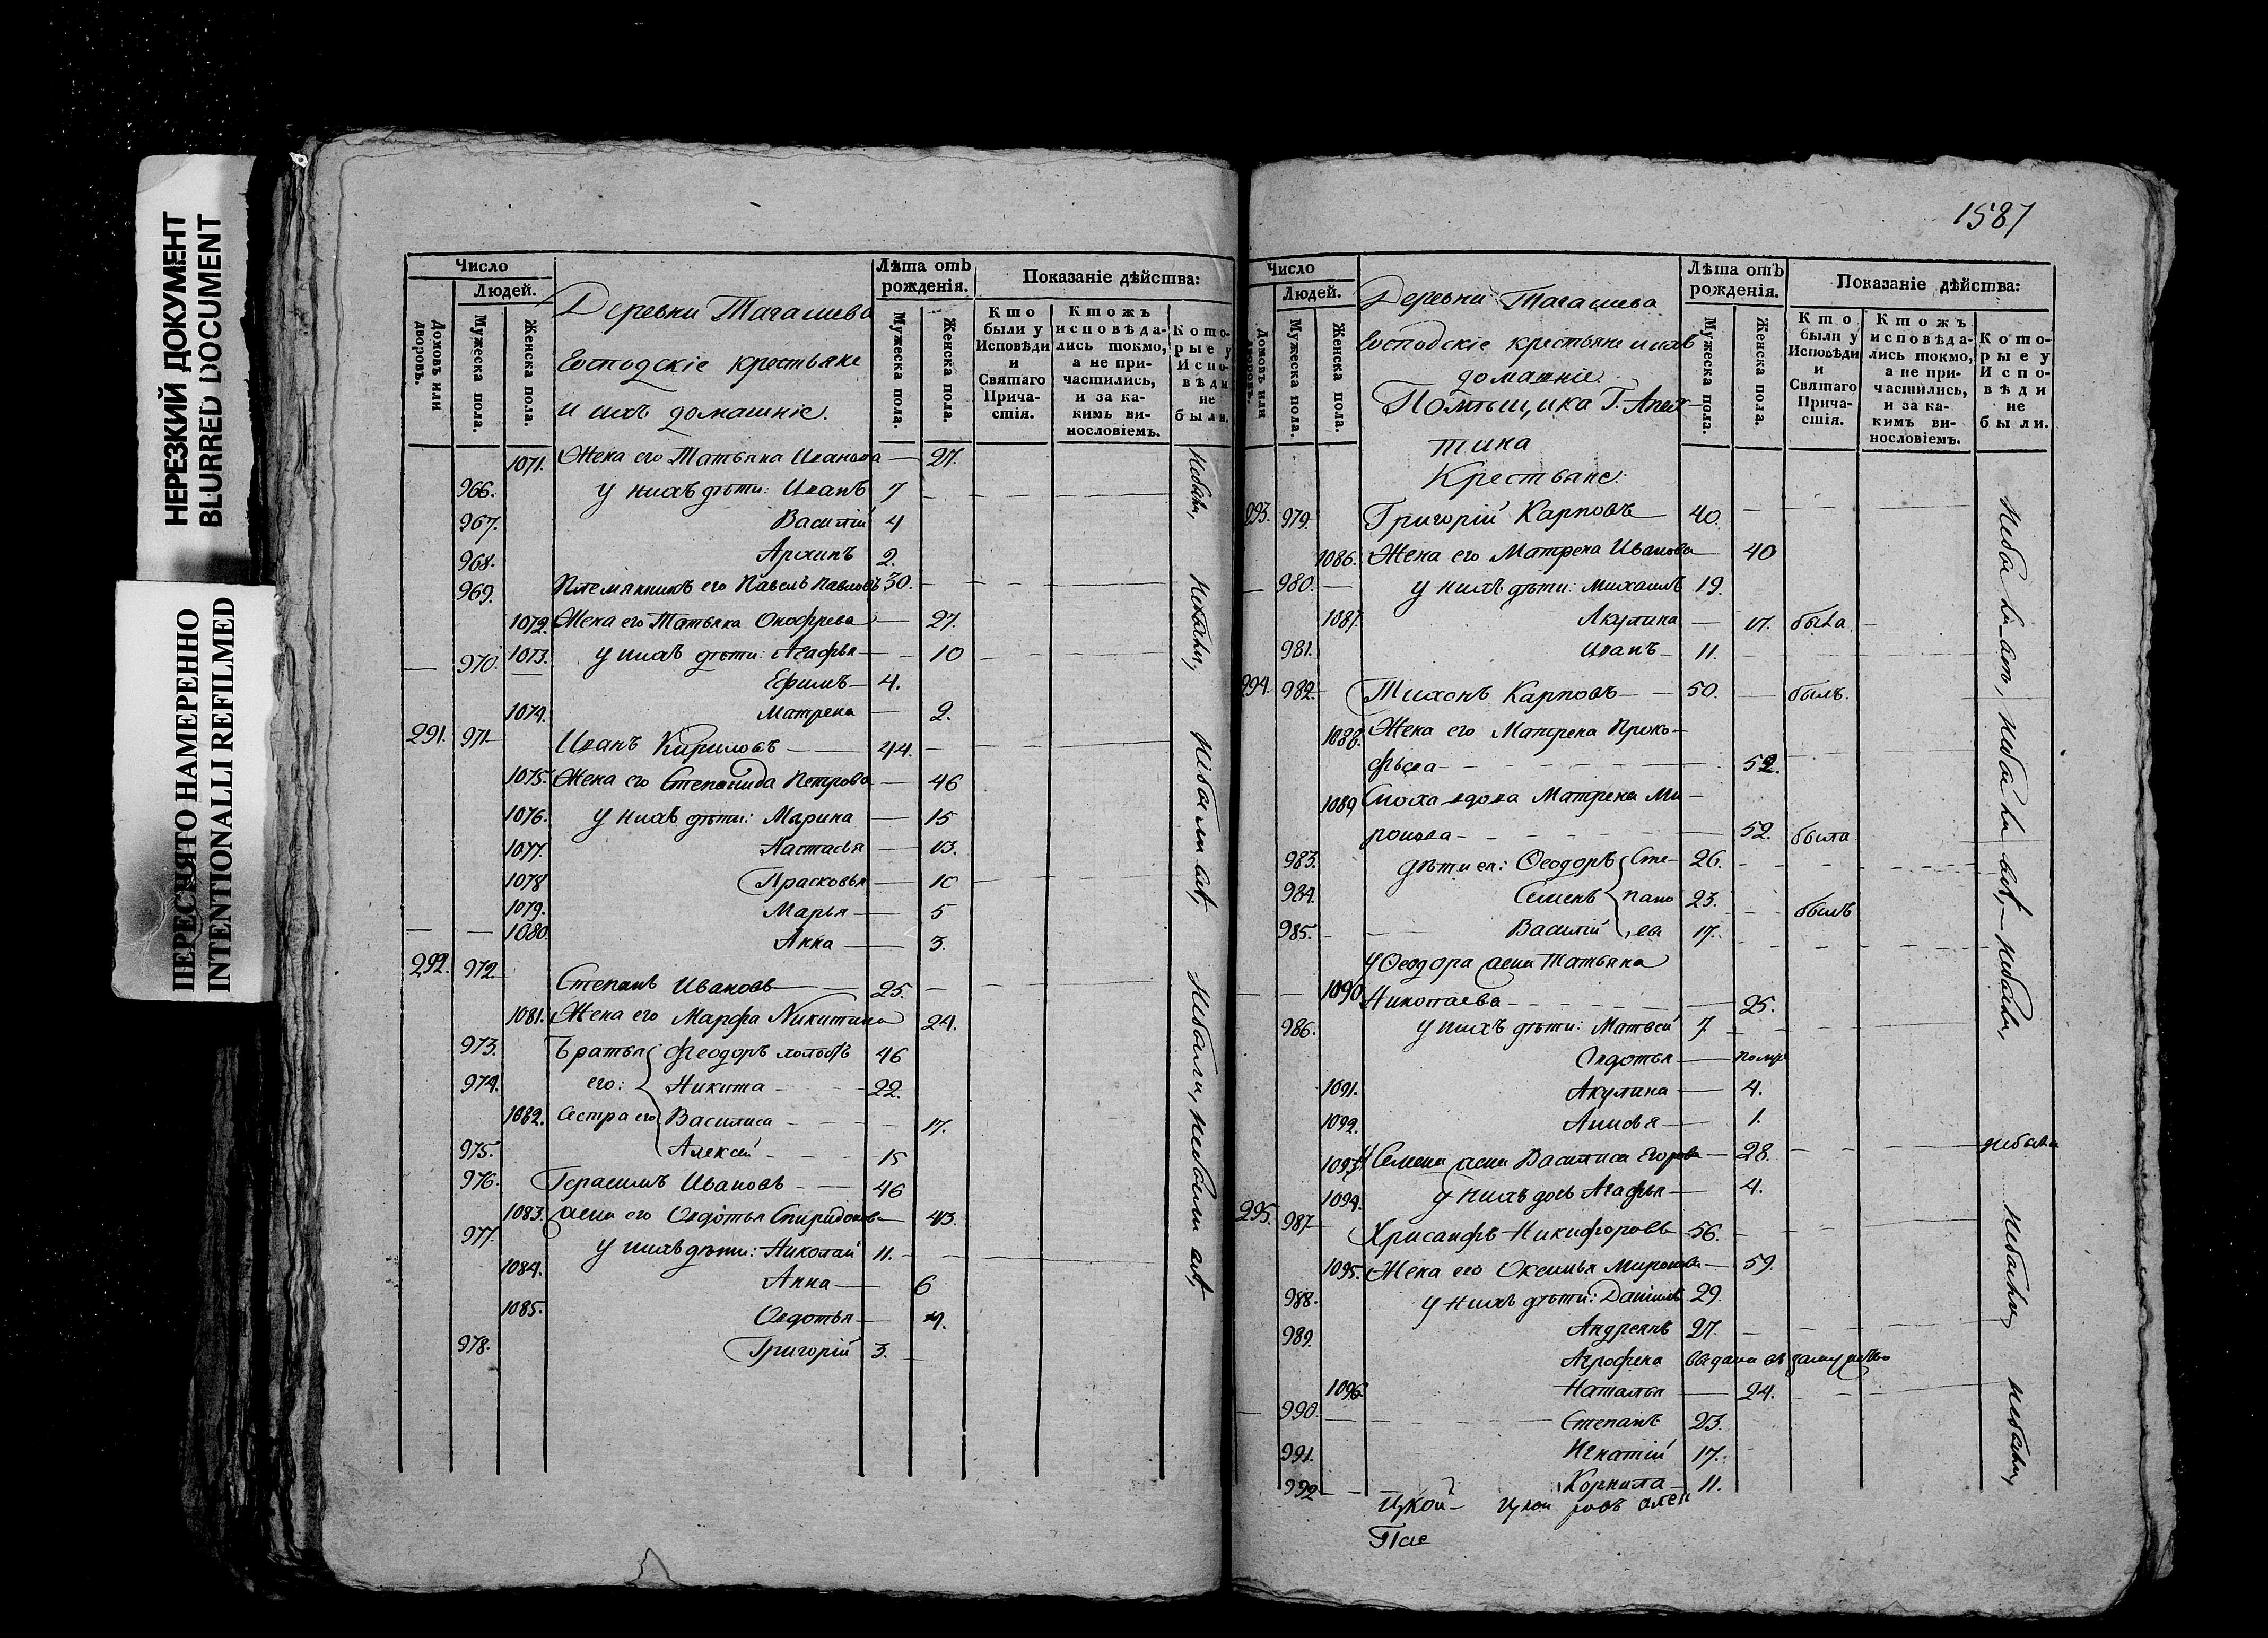 НЕРЕЗКИЙ ДОКУМЕНТ
BLURRED DOCUMENT
ПЕРЕСНЯТО НАМЕРЕННО
INTENTIONALLI REFILMED
Число
Людей.
Домовъ или дворовъ.
Мужеска пола.
Женска пола.
Деревни Тагашева
Господскіе крестьяне
и ихъ домашніе.
Лѣта отъ рожденія.
Мужеска пола.
Женска пола.
Показаніе дѣйства:
Кто были у Исповѣди и Святаго Причастія.
Ктожъ исповѣдались токмо, а не причастились, и за какимъ винословіемъ.
Которые у Исповѣди не были.
1071. Жена его Татьяна Иванова — 27.
966. У нихъ дѣти: Иванъ 7
967. Василій 4
968. Архипъ 2.
969. Племянникъ его Павелъ Павловъ 30.
1072. Жена его Татьяна Онофрева — 27.
970. 1073. У нихъ дѣти: Агафья — 10
Ефимъ — 4.
1074. Матрена — 2.
291. 971. Иванъ Кириловъ — 44.
1075. Жена его Степанида Петрова — 46
1076. У нихъ дѣти: Марина — 15
1077. Настасья — 13.
1078 Прасковья — 10
1079. Марья — 5
1080. Анна — 3.
292. 972. Степанъ Ивановъ — 25.
1081. Жена его Марфа Никитина 24.
973. Братья Феодоръ холостъ 46
974. его: Никита 22.
1082. Сестра его Василиса 17.
975. Алексей 15
976. Герасимъ Ивановъ — 46
1083. жена его Овдотья Спиридонова 43.
977. У нихъ дѣти: Николай 11.
1084. Анна — 6
1085. Овдотья — 4.
978. Григорій 3.
небыли,
небыли,
небыли
небыли, небыли
1587
Число
Людей.
Домовъ или дворовъ.
Мужеска пола.
Женска пола.
Деревни Тагашева
Господскіе крестьяне и ихъ
домашніе.
Помѣщика Г. Апех
тина
Крестьяне.
Лѣта отъ рожденія.
Мужеска пола.
Женска пола.
Показаніе дѣйства:
Кто были у Исповѣди и Святаго Причастія.
Ктожъ исповѣдались токмо, а не причастились, и за какимъ винословіемъ.
Которые у Исповѣди не были.
293. 979. Григорій Карповъ — 40.
1086. Жена его Матрена Иванова — 40
980. У нихъ дѣти: Михаилъ 19.
1087. Акулина — 17. была
981. Иванъ — 11.
294. 982. Тихонъ Карповъ — 50. былъ.
1088. Жена его Матрена Проко-
фьева — 52.
1089 Сноха вдова Матрена Ми-
ронова — 52. была
983. дѣти ея: Феодоръ Сте- 26.
984. Семенъ пано 23. былъ
985. Василій вы 17.
У Феодора жена Татьяна
1090. Николаева — 25.
986. У нихъ дѣти: Матвей 7
Овдотья — помре
1091. Акулина — 4.
1092. — 1.
1093. У Семена жена Василиса Егорова — 28. небыли
1094. У нихъ дочь Агафья — 4.
295. 987 Хрисанфъ Никифоровъ 56.
1095. Жена его Оксинья Миронова — 59.
988. У нихъ дѣти: Даниилъ 29.
989. Андреянъ 27.
Агрофена выдана въ замужство
1096. Наталья — 24.
990. Степанъ 23.
991. Игнатій 17.
992 Корнила — 11.
небыли
небыли
небыли